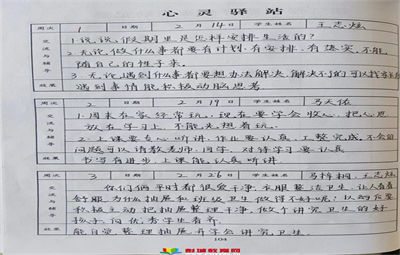 心灵驿站
周次 1 日期 2月14日 学生姓名 王志炫
交流与辅导
1. 说说,假期里是怎样安排生活的?
2. 无论做什么事都要有计划,有安排,有落实,不能
随自己的性子来。
3. 无论遇到什么事都要想办法解决,解决不了的可以找家长
效果 遇到事情能积极动脑思考
周次 2 日期 2月19日 学生姓名 马天佑
交流与辅导
1. 周末在家经常玩,现在要学会收心,把心思
放在学习上,不能光想着玩。
2. 上课要专心听讲,作业要认真、工整完成,不会的
问题可以请教老师、同学,对待学习要认真
效果 书写有进步,上课能认真听讲。
周次 3 日期 2月26日 学生姓名 马梓桐、王志炫
交流与辅导
你们俩平时看很爱干净,衣服整洁卫生,让人看着
舒服,为什么抽屉和班级卫生做得不好呢?以后要
积极主动把抽屉整理干净,做个讲究卫生的好
孩子,向优秀学生看齐。
效果 能自觉整理抽屉并学会讲究卫生。
104
彭城教育网